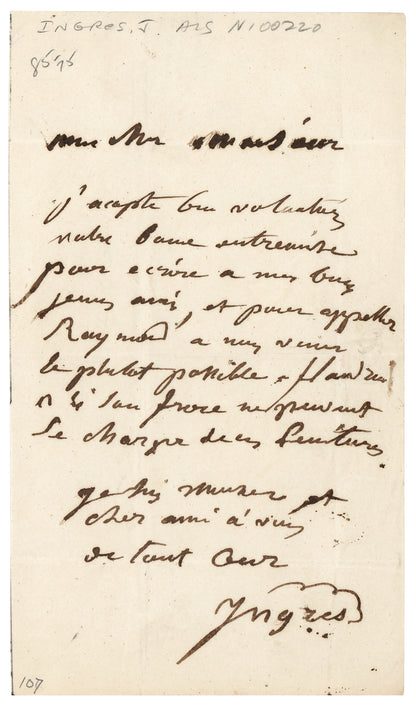 INGRES. J. ALS N100220
8575
mon cher monsieur
j'acepte bien volontiers
votre bonne entremise
pour ecrire a mes
jeunes amis, et pour appeller
Raymond a nous venir
le plutot possible. flandrin
ni son frere ne peuvent
se charger de ces Peintures.
je suis et
cher ami à vous
de tout Coeur
Yngres
107